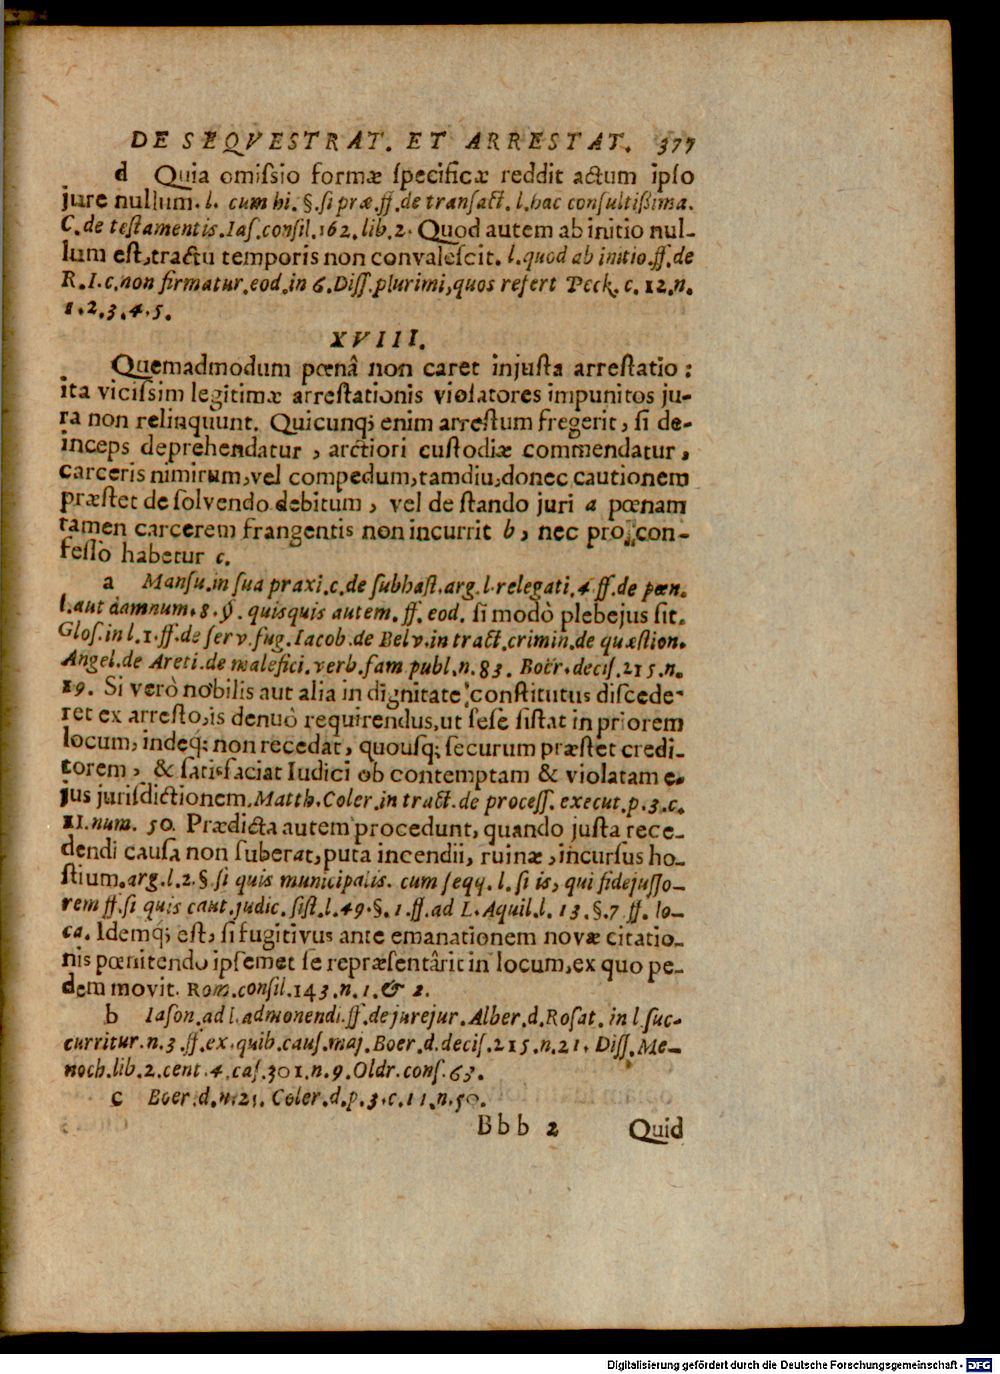 DE SEQVESTRAT. ET ARRESTAT. 377
d Quia omiſsio formæ ſpecificæ reddit actum ipſo
jure nullum. l. cum hi. §. ſi præ. ff. de tranſact. l. hac conſultißima.
C. de teſtamentis. Iaſ. conſil. 162. lib. 2. Quod autem ab initio nul-
lum eſt, tractu temporis non convaleſcit. l. quod ab initio. ff. de
R. I. c. non firmatur. eod. in 6. Diſſ. plurimi, quos refert Peck. c. 12. n.
1. 2. 3. 4. 5.
XVIII.
Quemadmodum pœnâ non caret injuſta arreſtatio:
ita viciſsim legitimæ arreſtationis violatores impunitos ju-
ra non relinquunt. Quicunq; enim arreſtum fregerit, ſi de-
inceps deprehendatur, arctiori cuſtodiæ commendatur,
carceris nimirum, vel compedum, tamdiu, donec cautionem
præſtet de ſolvendo debitum, vel de ſtando juri a pœnam
tamen carcerem frangentis non incurrit b, nec pro con-
feſſo habetur c.
a Manſu. in ſua praxi. c. de ſubhaſt. arg. l. relegati. 4. ff. de pœn.
l. aut damnum. 8. §. quisquis autem. ff. eod. ſi modò plebejus ſit.
Gloſ. in l. 1. ff. de ſerv. fug. Iacob. de Belv. in tract. crimin. de quæſtion.
Angel. de Areti. de malefici. verb. fam publ. n. 83. Boër. deciſ. 215. n.
19. Si verò nobilis aut alia in dignitate conſtitutus diſcede-
ret ex arreſto, is denuò requirendus, ut ſeſe ſiſtat in priorem
locum, indeq; non recedat, quouſq; ſecurum præſtet credi-
torem, & ſatisfaciat Iudici ob contemptam & violatam e-
jus jurisdictionem. Matth. Coler. in tract. de proceſſ. execut. p. 3. c.
11. num. 50. Prædicta autem procedunt, quando juſta rece-
dendi cauſa non ſuberat, puta incendii, ruinæ, incurſus ho-
ſtium. arg. l. 2. §. ſi quis municipalis. cum ſeqq. l. ſi is, qui fidejuſſo-
rem ff. ſi quis caut. judic. ſiſt. l. 49. §. 1. ff. ad L. Aquil. l. 13. §. 7 ff. lo-
ca. Idemq; eſt, ſi fugitivus ante emanationem novæ citatio-
nis pœnitendo ipſemet ſe repræſentârit in locum, ex quo pe-
dem movit. Rom. conſil. 143. n. 1. & 2.
b Iaſon. ad l. admonendi. ff. de jurejur. Alber. d. Roſat. in l. ſuc-
curritur. n. 3. ff. ex. quib. cauſ. maj. Boer. d. deciſ. 215. n. 21. Diſſ. Me-
noch. lib. 2. cent. 4. caſ. 301. n. 9. Oldr. conſ. 63.
c Boer. d. n. 21. Coler. d. p. 3. c. 11. n. 50.
Bbb 2 Quid
Digitalisierung gefördert durch die Deutsche Forschungsgemeinschaft - DFG